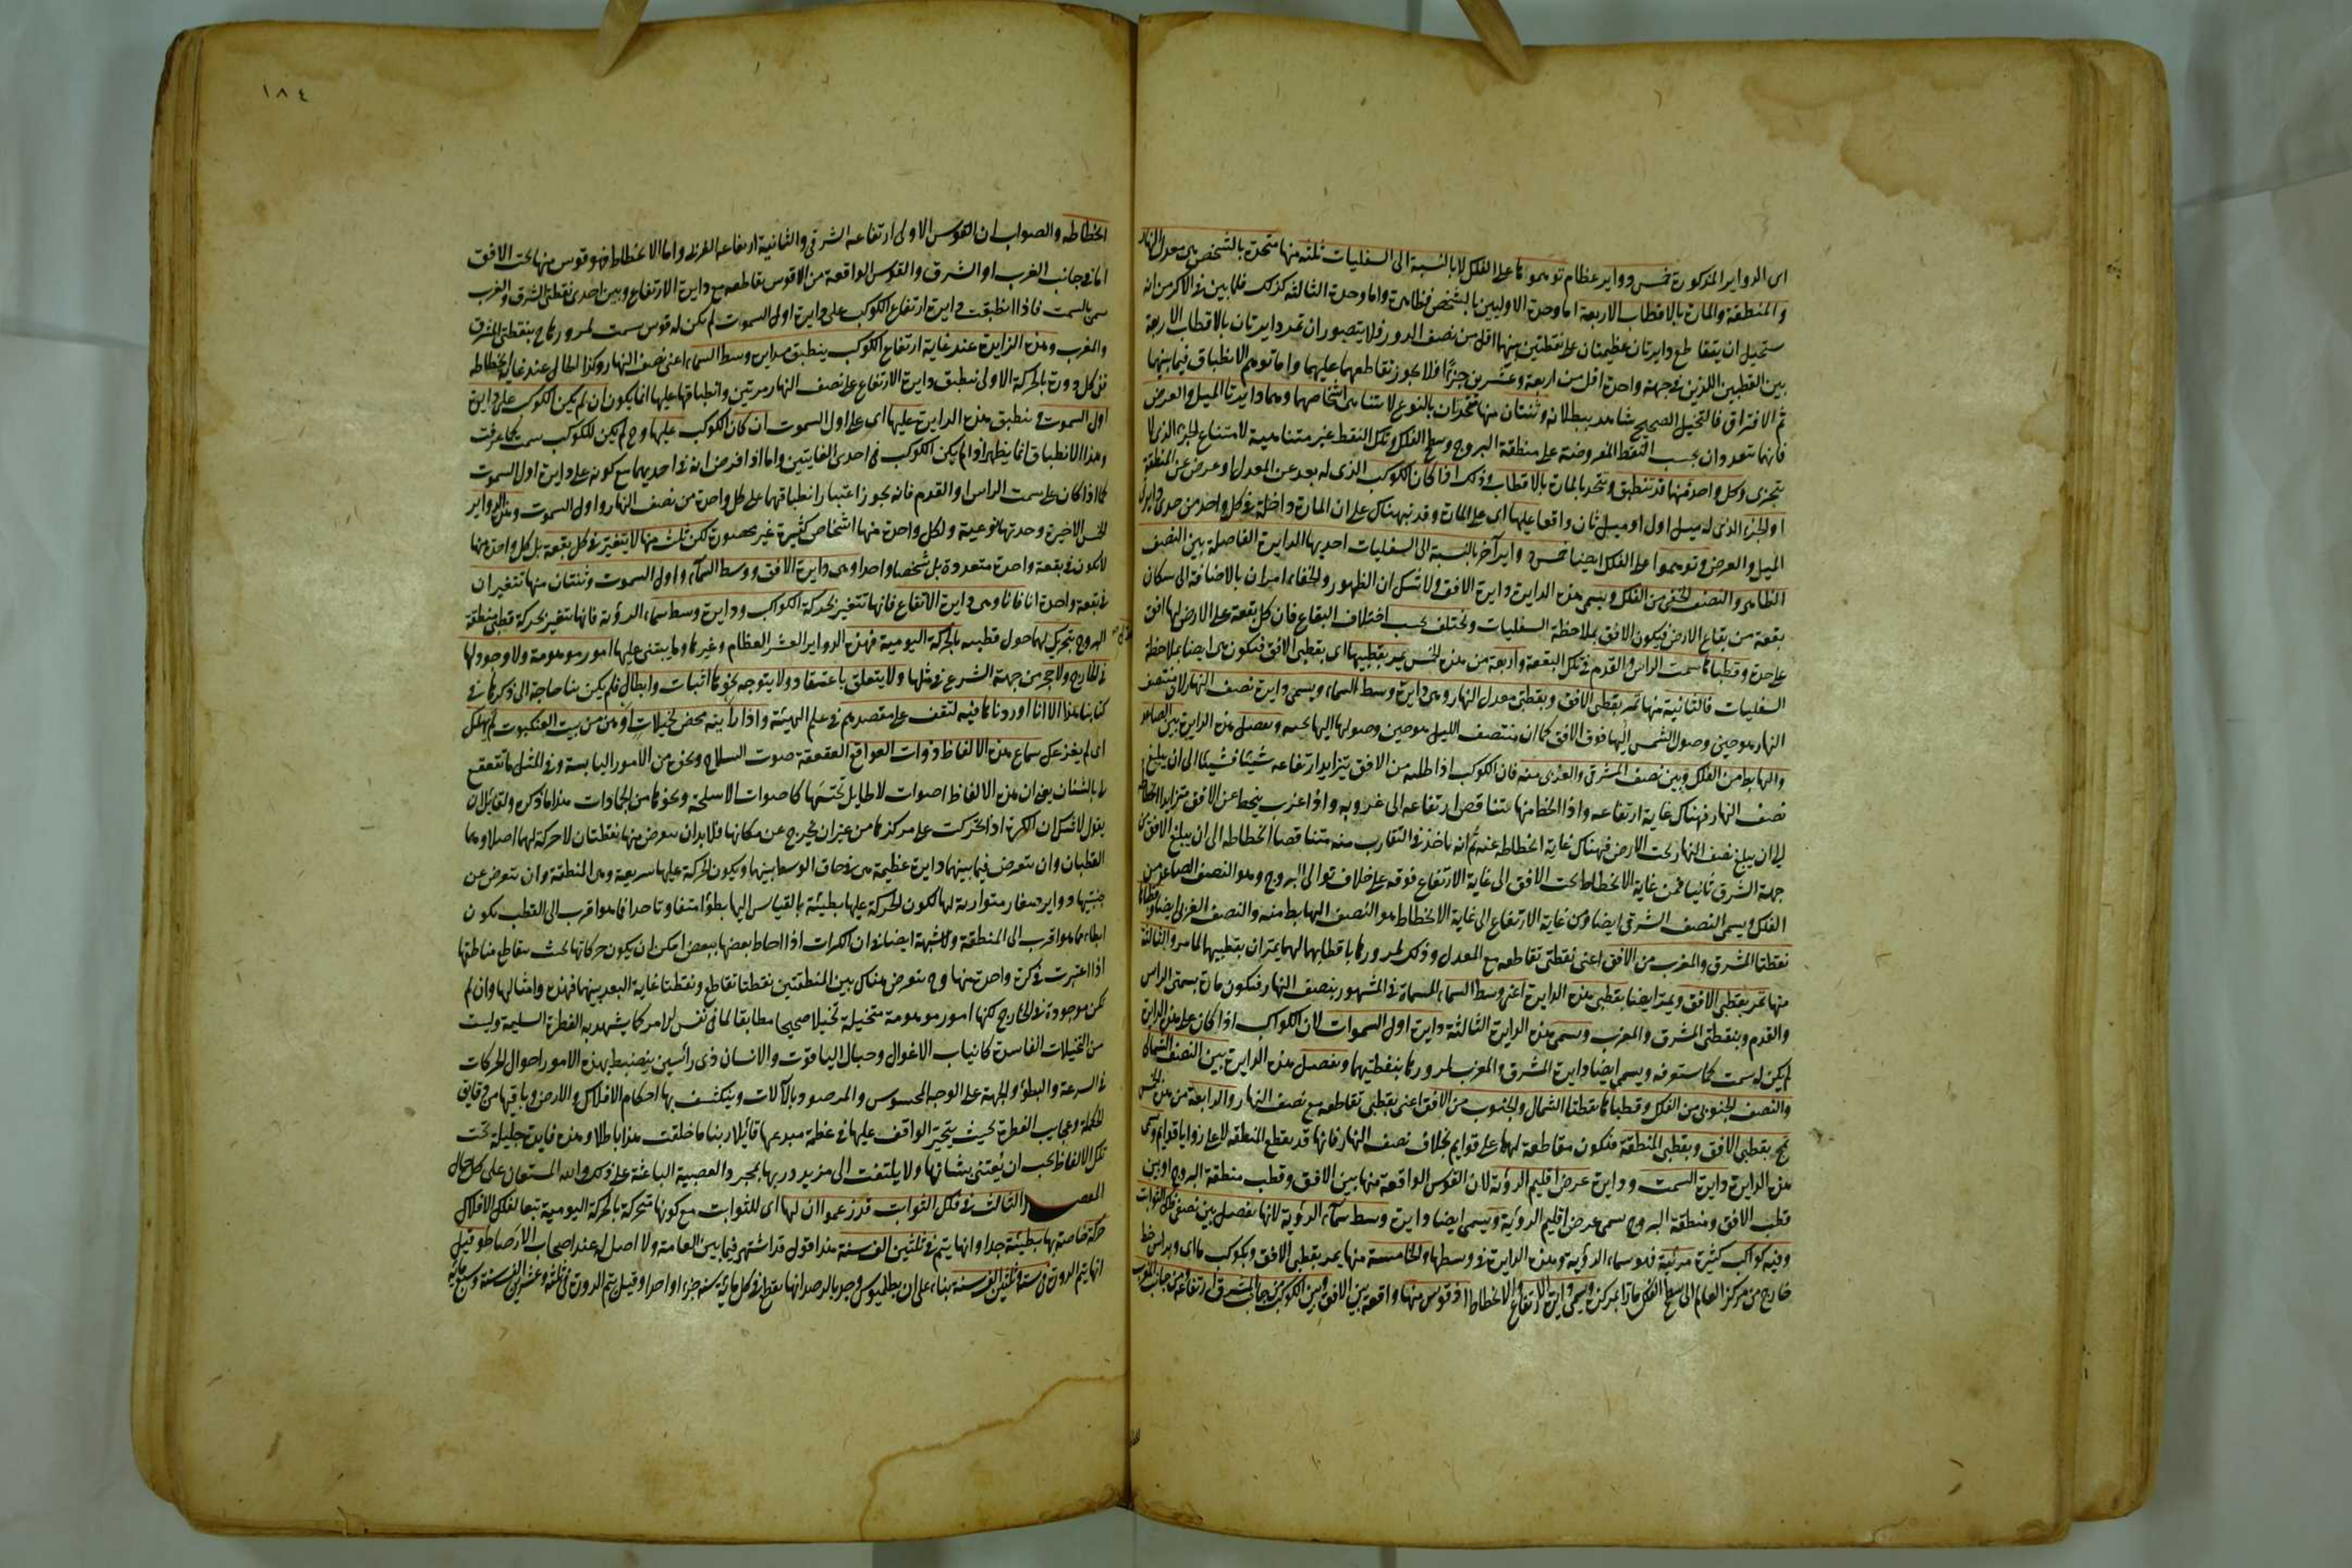 اى الدواير المذكورة خمس دواير عظام توهموها على الفلك لا بالنسبة الى السفليات ثلثة منها متحدة بالشخص هى معدل النهار
والمنطقة والمارة بالاقطاب الاربعة اما وحدة الاوليين بالشخص فظاهرة واما وحدة الثالثة كذلك فلما بين فى الاكر من انه
يستحيل ان يتقاطع دايرتان عظيمتان على نقطتين بينهما اقل من نصف الدور فلا يتصور ان تمر دايرتان بالاقطاب الاربعة
بين القطبين اللذين فى جهة واحدة اقل من اربعة وعشرين جزءًا فلا يجوز تقاطعهما عليهما واما توهم الانطباق فيما بينهما
ثم الافتراق فالتخيل الصحيح شاهد ببطلانه وثنتان منها متحدتان بالنوع لا تتناهى اشخاصهما وهما دايرتا الميل والعرض
فانهما تتعددان بحسب النقط المفروضة على منطقة البروج وسطح الفلك وتلك النقط غير متناهية لامتناع الجزء الذى لا
يتجزى وكل واحدة منهما قد تنطبق وتتحد بالمارة بالاقطاب وذلك اذا كان الكوكب الذى له بعد عن المعدل او عرض عن المنطقة
او الجزء الذى له ميل اول او ميل ثان واقعا عليها اى على المارة وقد نبهناك على ان المارة داخلة فى كل واحد من
الميل والعرض وتوهموا على الفلك ايضا خمس دواير آخر بالنسبة الى السفليات احديها الدايرة الفاصلة بين النصف
الظاهر والنصف الخفى من الفلك ويسمى هذه الدايرة دايرة الافق ولا شك ان الظهور والخفاء امران بالاضافة الى سكان
بقعة من بقاع الارض فيكون الافق بملاحظة السفليات وتختلف بحسب اختلاف البقاع فان كل بقعة على الارض لها افق
على حدة وقطباها سمت الراس والقدم فى تلك البقعة واربعة من هذه الخمس يمر بقطبيها اى بقطبى الافق فتكون هى ايضا بملاحظة
السفليات فالثانية منها تمر بقطبى الافق وبقطبى معدل النهار وهى دايرة وسط السماء ويسمى دايرة نصف النهار لان منتصف
النهار هو حين وصول الشمس اليها فوق الافق كما ان منتصف الليل هو حين وصولها اليها تحته ويفصل هذه الدايرة بين الصاعد
والهابط من الفلك وبين نصف المشرقى والغربى منه فان الكوكب اذا طلع من الافق يتزايد ارتفاعه شيئا فشيئا الى ان يبلغ
نصف النهار فهناك غاية ارتفاعه واذا انحط منها يتناقص ارتفاعه الى غروبه واذا غرب ينحط عن الافق متزايدا انحطاطه
الى ان يبلغ نصف النهار تحت الارض فهناك غاية انحطاطه عنه ثم انه ياخذ فى التقارب منه متناقصا انحطاطه الى ان يبلغ الافق
جهة الشرق ثانيا فمن غاية الانحطاط تحت الافق الى غاية الارتفاع فوقه على خلاف توالى البروج وهو النصف الصاعد من
الفلك ويسمى النصف الشرقى ايضا ومن غاية الارتفاع الى غاية الانحطاط هو النصف الهابط منه والنصف الغربى ايضا
نقطتا المشرق والمغرب من الافق اعنى نقطتى تقاطعه مع المعدل وذلك لمرورها باقطابهما لهما يمران بقطبيها لما مر والثالثة
منها تمر بقطبى الافق ويمر ايضا بقطبى هذه الدايرة اعنى وسط السماء المسماة فى المشهور بنصف النهار فتكون مارة بسمتى الراس
والقدم وبنقطتى المشرق والمغرب وتسمى هذه الدايرة الثالثة دايرة اول السموات لان الكواكب اذا كان على هذه الدايرة
لم يكن له سمت كما ستعرفه ويسمى ايضا دايرة المشرق والمغرب لمرورها بنقطتيهما ويفصل هذه الدايرة بين النصف الشمالى
والنصف الجنوبى من الفلك وقطباها نقطتا الشمال والجنوب من الافق اعنى بقطبى تقاطعه مع نصف النهار والرابعة من هذه الخمس
تمر بقطبى الافق وبقطبى المنطقة فتكون مقاطعة لهما على قوايم بخلاف نصف النهار فانها قد يقطع المنطقة لا على زوايا قوايم وتسمى
هذه الدايرة دايرة السمت ودايرة عرض اقليم الرؤية لان القوس الواقعة منها بين الافق وقطب منطقة البروج او بين
قطب الافق ومنطقة البروج يسمى عرض اقليم الرؤية ويسمى ايضا دايرة وسط سماء الرؤية لانها يفصل بين نصفى فلك الثوابت
وفيه كواكب كثيرة مرئية فهو سماء الرؤية وهذه الدايرة فى وسطها والخامسة منها يمر بقطبى الافق وبكوكب ما اى وبراس خط
خارج من مركز العالم الى سطح الفلك مارا بمركزه ويسمى دايرة الارتفاع والانحطاط اذ قوس منها واقعة بين الافق وبين الكوكب من جانب الشرق ارتفاعه ومن جانب الغرب
انحطاطه والصواب ان القوس الاولى ارتفاعه الشرقى والثانية ارتفاعه الغربى واما الانحطاط فهو قوس منها تحت الافق
اما فى جانب الغرب او الشرق والقوس الواقعة من الافق من تقاطعه مع دايرة الارتفاع وبين احدى نقطتى الشرق والغرب
يسمى بالسمت فاذا انطبقت دايرة ارتفاع الكوكب على دايرة اول السموت لم يكن له قوس سمت لمرورها ح بنقطتى المشرق
والمغرب وهذه الدايرة عند غاية ارتفاع الكوكب ينطبق بدايرة وسط السماء اعنى نصف النهار وكذا الحال عند غاية انحطاطه
ففى كل دورة بالحركة الاولى تنطبق دايرة الارتفاع على نصف النهار مرتين وانطباقها عليها انما يكون ان لم يكن الكوكب على دايرة
اول السموت وتنطبق هذه الدايرة عليها اى على اول السموت ان كان الكوكب عليها وح لم يكن للكوكب سمت كما عرفت
وهذا الانطباق انما يظهر اذا لم يكن الكوكب فى احدى الغايتين واما اذا فرض انه فى احديهما مع كونه على دايرة اول السموت
كما اذا كان على سمت الراس او القدم فانه يجوز اعتبار انطباقها على كل واحدة من نصف النهار واول السموت وهذه الدواير
الخمس الاخيرة وحدتها نوعية ولكل واحدة منها اشخاص كثيرة غير محصورة لكن ثلث منها لا يتغير فى كل بقعة بل كل واحدة منها
لا يكون فى بقعة واحدة متعددة بل شخصا واحدا وهى دايرة الافق ووسط السماء واول السموت وثنتان منها تتغيران
فى بقعة واحدة انا فانا وهى دايرة الارتفاع فانها تتغير بحركة الكواكب ودايرة وسط سماء الرؤية فانها يتغير بحركة قطبى منطقة
البروج بتحريك لهما حول قطبيه بالحركة اليومية فهذه الدواير العشر العظام وغيرها وما يبتنى عليها امور موهومة ولا وجود لها
فى الخارج ولا حجر من جهة الشرع فى مثلها ولا يتعلق باعتقاد ولا يتوجه نحوها اثبات وابطال فلم يكن بنا حاجة الى ذكرها فى
كتابنا هذا الا انا اوردناها فيه لتقف على مقصدهم فى علم الهيئة واذا رأيته محض تخيلات اوهن من بيت العنكبوت لم يهلك
اى لم يغزعك سماع هذه الالفاظ ذوات القعاقع القعقعة صوت السلاح ونحوه من الامور اليابسة وفى المثل ما تقعقع
لى بالشنان يعنى ان هذه الالفاظ اصوات لا طايل تحتها كاصوات الاسلحة ونحوها من الجمادات هذا ما ذكره ولقايل ان
يقول لا شك ان الكرة اذا تحركت على مركزها من غير ان يخرج عن مكانها فلا بد ان يتعرض منها نقطتان لا حركة لهما اصلا وهما
القطبان وان يتعرض فيما بينهما دايرة عظيمة هى فى حاق الوسط بينهما ويكون الحركة عليها سريعة وهى المنطقة وان يتعرض عن
جنبيها دواير صغار متوازية لها الكون الحركة عليها بطيئة بالقياس اليها بطؤا متفاوتا جدا فما هو اقرب الى القطب يكون
ابطا مما هو اقرب الى المنطقة ولا شبهة ايضا فى ان الكرات اذا احاط بعضها ببعض امكن ان يكون حركاتها بحيث يتقاطع مناطقها
اذا اعتبرت فى كرة واحدة منها وح يتعرض هناك بين المنطقتين نقطتا تقاطع ونقطتا غاية البعد بينهما فهذه وامثالها وان لم
تكن موجودة فى الخارج لكنها امور موهومة متخيلة تخيلا صحيحا مطابقا لما فى نفس الامر كما يشهد به الفطرة السليمة وليست
من التخيلات الفاسدة كانياب الاغوال وجبال الياقوت والانسان ذى رأسين ينضبط بهذه الامور احوال الحركات
فى السرعة والبطؤ والجهة على الوجه المحسوس والمرصود بالآلات وينكشف بها احكام الافلاك والارض وما فيها من دقايق
الحكمة وعجايب الفطرة بحيث يتحير الواقف عليها فى عظمة مبدعها قائلا ربنا ما خلقت هذا باطلا وهذه فايدة جليلة تحت
تلك الالفاظ يجب ان يُعتنى بشانها ولا يلتفت الى من يزدرى بها بمجرد العصبية الباعثة على ذلك والله المستعان على كل حال
المقصد الثالث فى فلك الثوابت قد زعموا ان لها اى للثوابت مع كونها متحركة بالحركة اليومية تبعا للفلك الافلاك
حركة خاصة بها بطيئة جدا وانها يتم فى ثلثين الف سنة هذا قول قد اشتهر فيما بين العامة ولا اصل له عند اصحاب الارصاد وقيل
انها يتم الدورة فى ستة وثلثين الف سنة بناء على ان بطلميوس وجد بالرصد انها يقطع فى كل ماية سنة جزءا واحدا وقيل يتم الدورة فى ثلثة وعشرين الف سنة وسبع ماية
١٨٤